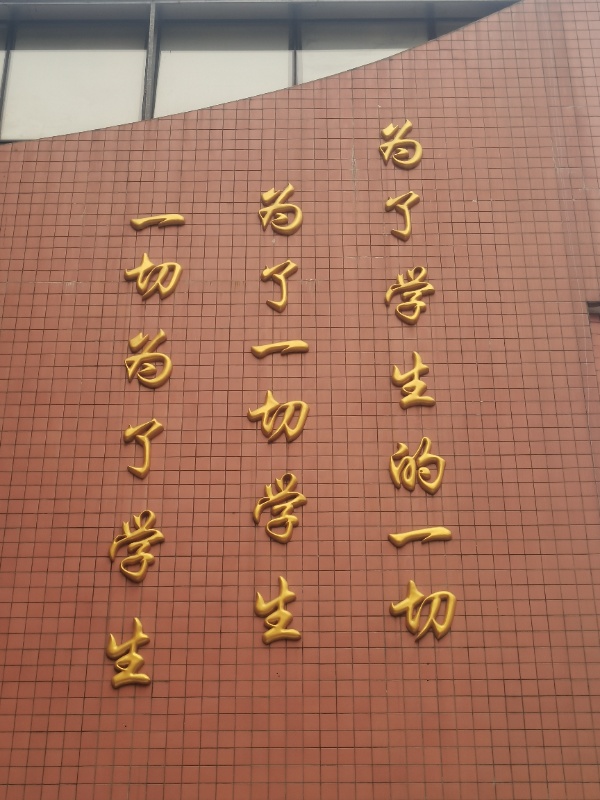 为了学生的一切
为了一切学生
一切为了学生